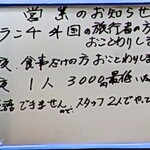 営業のお知らせ
ランチ 外国の旅行者の方
おことわりしま
夜、食事だけの方おことわりしま
夜 1人 3000円最低
できません ので、スタッフ2人でやって